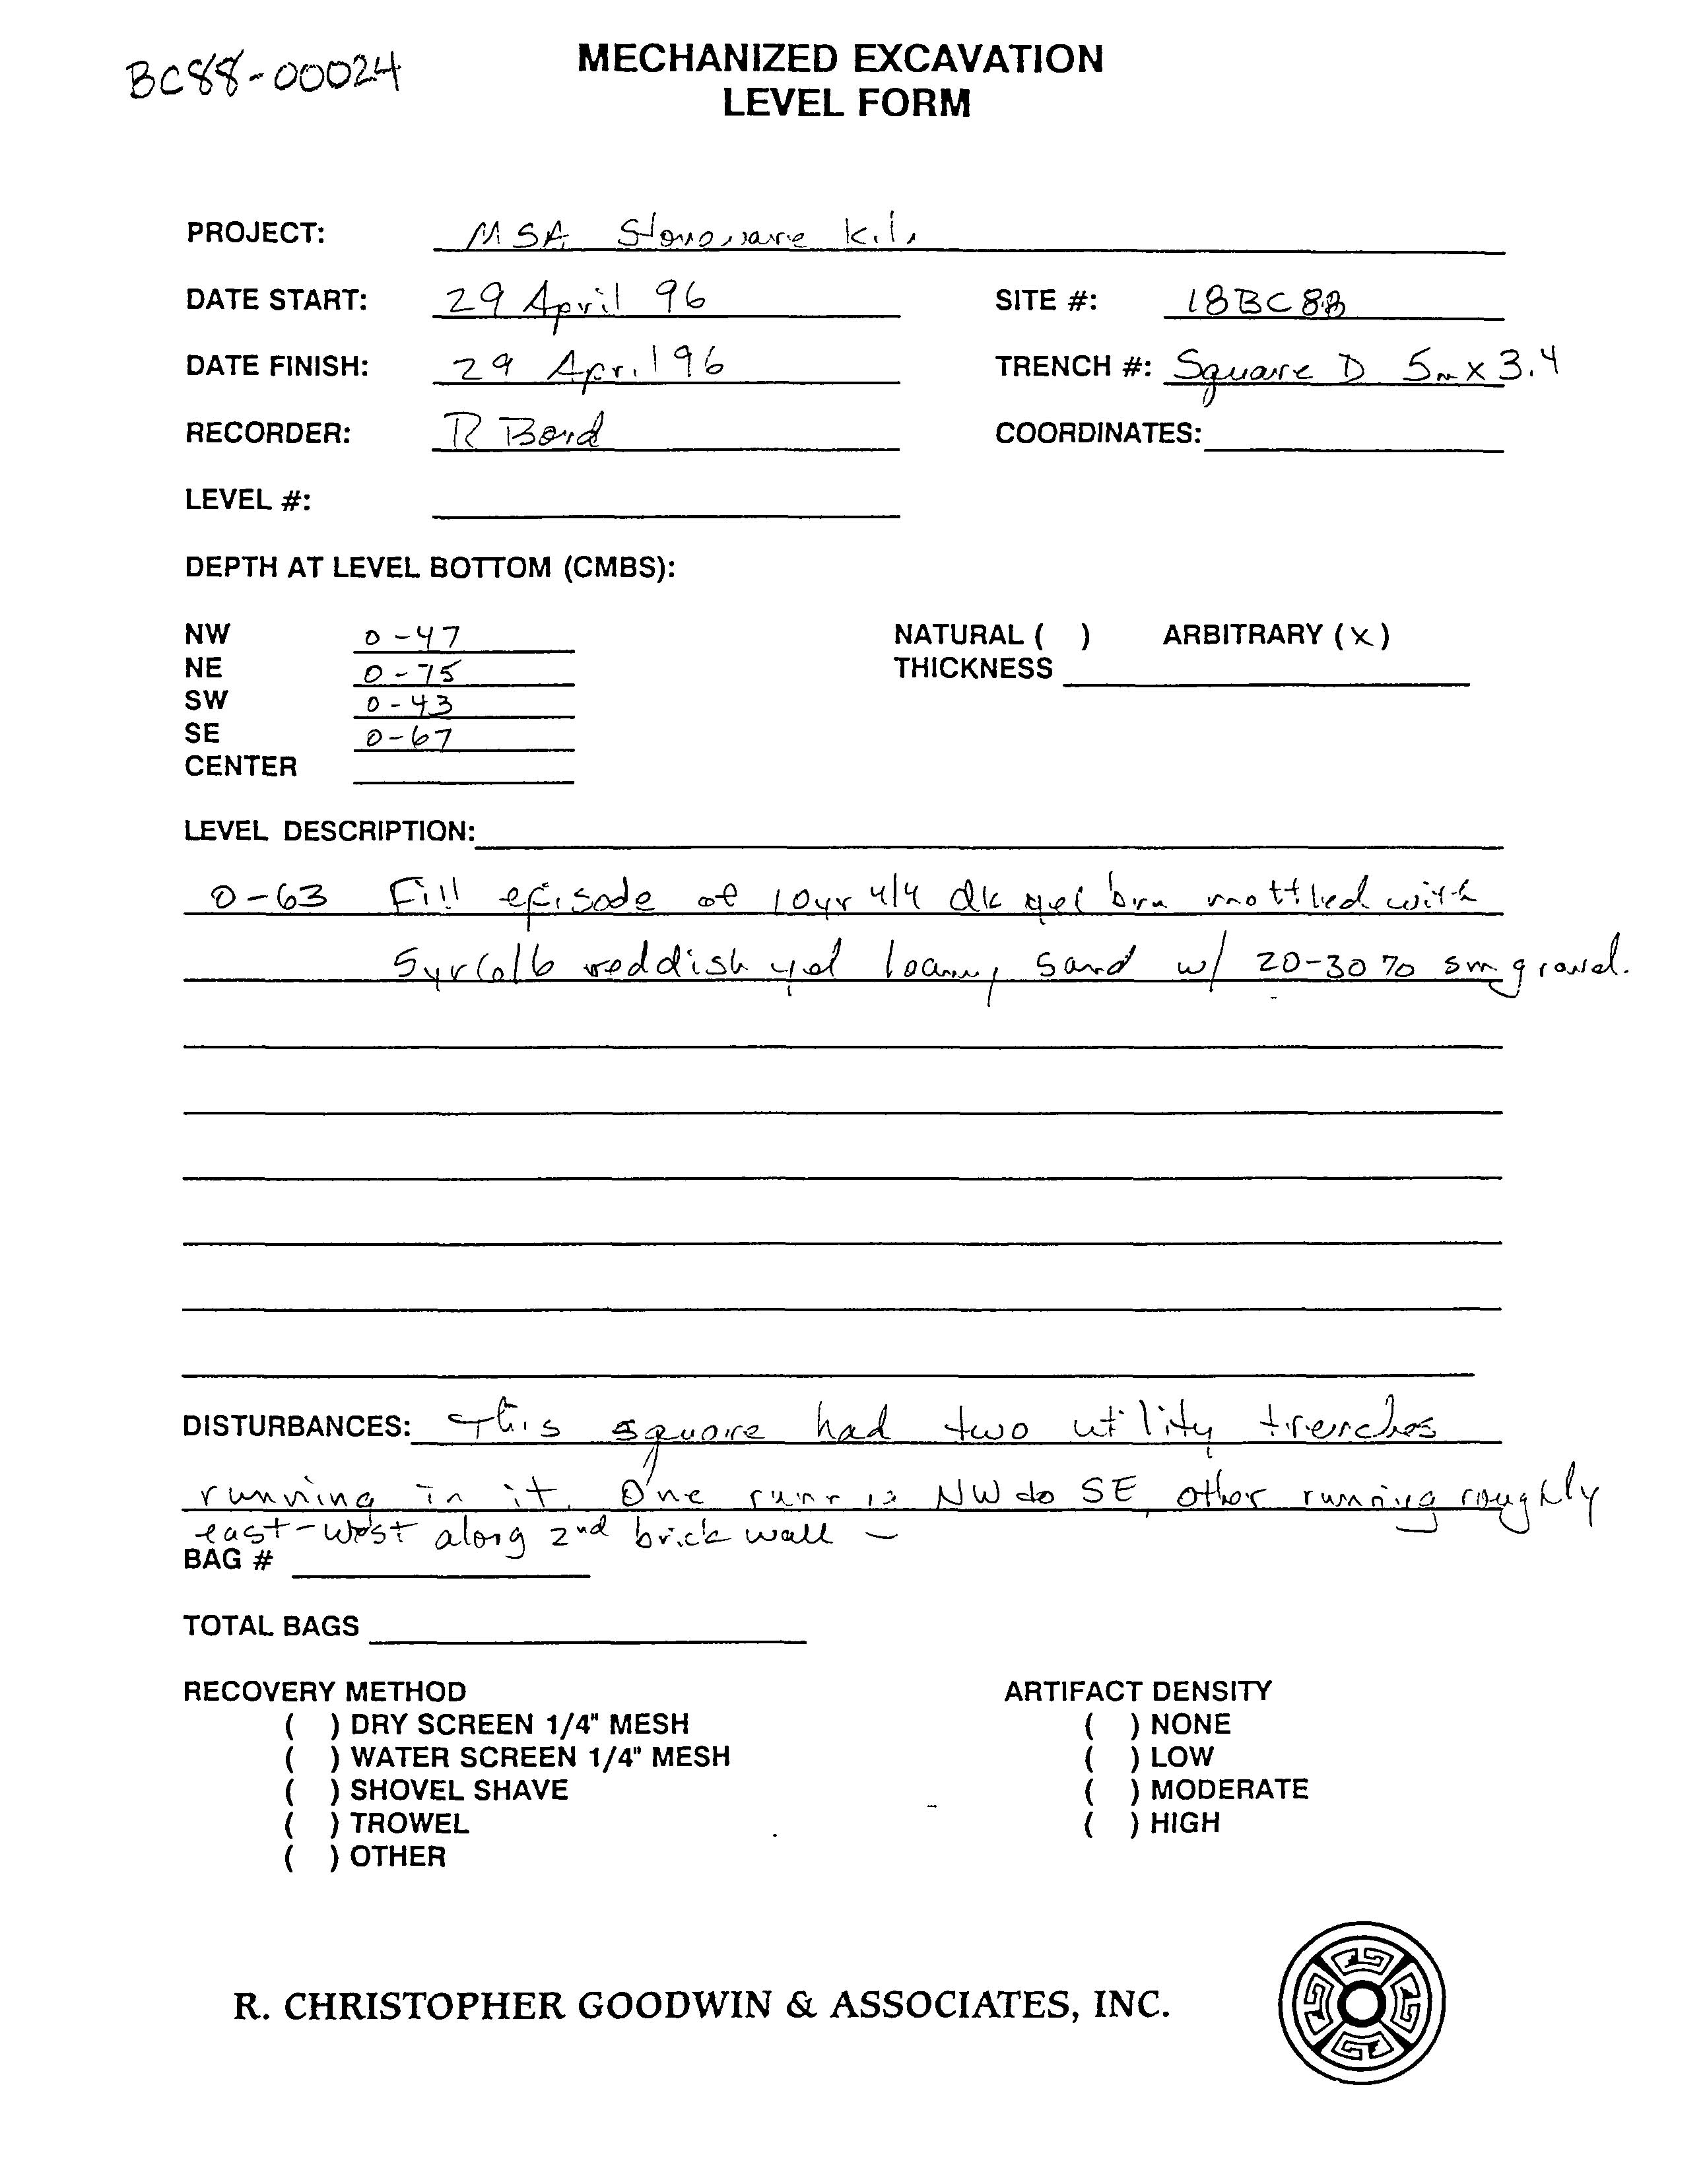 BC88-00024
MECHANIZED EXCAVATION
LEVEL FORM
PROJECT: MSA Stoneware Kiln
DATE START: 29 April 96 SITE #: 18BC88
DATE FINISH: 29 April 96 TRENCH #: Square D 5m x 3.4
RECORDER: R COORDINATES:
LEVEL #:
DEPTH AT LEVEL BOTTOM (CMBS):
NW 0-47 NATURAL ( ) ARBITRARY (x)
NE 0-75 THICKNESS
SW 0-43
SE 0-67
CENTER
LEVEL DESCRIPTION:
0-63 Fill episode of 10yr 4/4 dk yel brn mottled with
5yr 6/6 reddish yel loamy sand w/ 20-30% sm gravel.
DISTURBANCES: This square had two utility trenches
running in it. One runs NW to SE, other running roughly
east-west along 2nd brick wall -
BAG #
TOTAL BAGS
RECOVERY METHOD ARTIFACT DENSITY
( ) DRY SCREEN 1/4" MESH ( ) NONE
( ) WATER SCREEN 1/4" MESH ( ) LOW
( ) SHOVEL SHAVE ( ) MODERATE
( ) TROWEL ( ) HIGH
( ) OTHER
R. CHRISTOPHER GOODWIN & ASSOCIATES, INC.